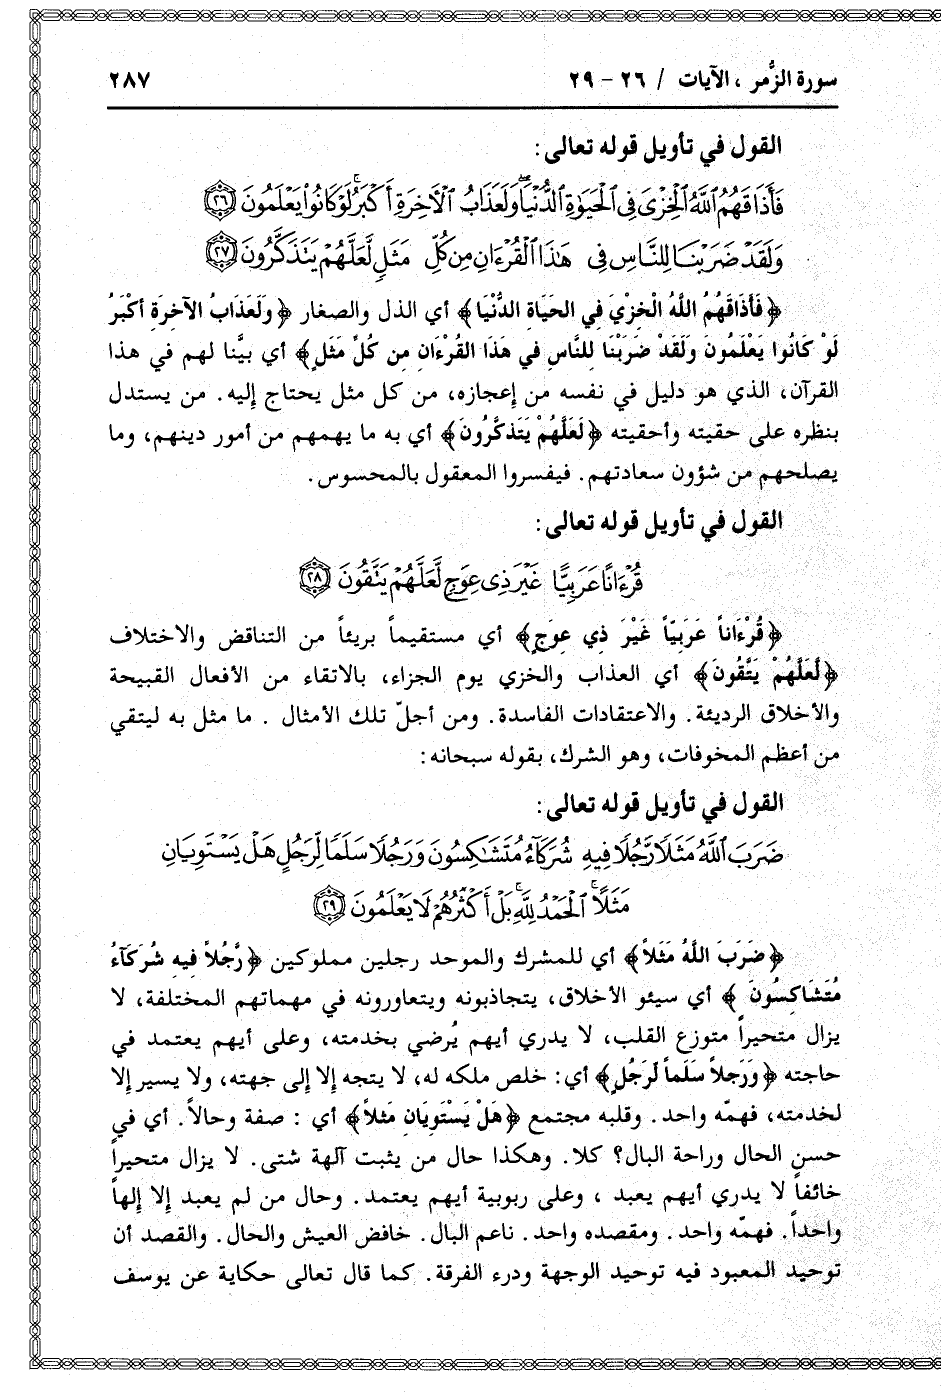 سورة الزُّمر ، الآيات / ٢٦ - ٢٩ ٢٨٧
القول في تأويل قوله تعالى:
فَأَذَاقَهُمُ ٱللَّهُ ٱلْخِزْىَ فِى ٱلْحَيَوٰةِ ٱلدُّنْيَا ۖ وَلَعَذَابُ ٱلْءَاخِرَةِ أَكْبَرُ ۚ لَوْ كَانُوا۟ يَعْلَمُونَ ٢٦
وَلَقَدْ ضَرَبْنَا لِلنَّاسِ فِى هَٰذَا ٱلْقُرْءَانِ مِن كُلِّ مَثَلٍ لَّعَلَّهُمْ يَتَذَكَّرُونَ ٢٧
﴿فَأَذَاقَهُمُ اللَّهُ الْخِزْيَ فِي الحَيَاةِ الدُّنْيَا﴾ أي الذل والصغار ﴿ولَعَذَابُ الآخِرَةِ أكْبَرُ
لَوْ كَانُوا يَعْلَمُونَ وَلَقَدْ ضَرَبْنَا لِلنَّاسِ فِي هَذَا القُرْءَانِ مِن كُلِّ مَثَلٍ﴾ أي بيَّنا لهم في هذا
القرآن، الذي هو دليل في نفسه من إعجازه، من كل مثل يحتاج إليه. من يستدل
بنظره على حقيته وأحقيته ﴿لَعَلَّهُمْ يَتَذكَّرُونَ﴾ أي به ما يهمهم من أمور دينهم، وما
يصلحهم من شؤون سعادتهم. فيفسروا المعقول بالمحسوس.
القول في تأويل قوله تعالى:
قُرْءَانًا عَرَبِيًّا غَيْرَ ذِى عِوَجٍ لَّعَلَّهُمْ يَتَّقُونَ ٢٨
﴿قُرْءَاناً عَرَبِيّاً غَيْرَ ذِي عِوَجٍ﴾ أي مستقيماً بريئاً من التناقض والاختلاف
﴿لَعَلَّهُمْ يَتَّقُونَ﴾ أي العذاب والخزي يوم الجزاء، بالاتقاء من الأفعال القبيحة
والأخلاق الرديئة. والاعتقادات الفاسدة. ومن أجلّ تلك الأمثال . ما مثل به ليتقي
من أعظم المخوفات، وهو الشرك، بقوله سبحانه:
القول في تأويل قوله تعالى:
ضَرَبَ ٱللَّهُ مَثَلًا رَّجُلًا فِيهِ شُرَكَآءُ مُتَشَٰكِسُونَ وَرَجُلًا سَلَمًا لِّرَجُلٍ هَلْ يَسْتَوِيَانِ
مَثَلًا ۚ ٱلْحَمْدُ لِلَّهِ ۚ بَلْ أَكْثَرُهُمْ لَا يَعْلَمُونَ ٢٩
﴿ضَرَبَ اللَّهُ مَثَلاً﴾ أي للمشرك والموحد رجلين مملوكين ﴿رَّجُلاً فِيهِ شُرَكَآءُ
مُتَشَاكِسُونَ ﴾ أي سيئو الأخلاق، يتجاذبونه ويتعاورونه في مهماتهم المختلفة، لا
يزال متحيراً متوزع القلب، لا يدري أيهم يُرضي بخدمته، وعلى أيهم يعتمد في
حاجته ﴿وَرَجلاً سَلَماً لَرَجُلٍ﴾ أي: خلص ملكه له، لا يتجه إلا إلى جهته، ولا يسير إلا
لخدمته، فهمّه واحد. وقلبه مجتمع ﴿هَلْ يَسْتَوِيَانِ مَثلاً﴾ أي : صفة وحالاً. أي في
حسن الحال وراحة البال؟ كلا. وهكذا حال من يثبت آلهة شتى. لا يزال متحيراً
خائفاً لا يدري أيهم يعبد ، وعلى ربوبية أيهم يعتمد. وحال من لم يعبد إلا إلهاً
واحداً. فهمّه واحد. ومقصده واحد. ناعم البال. خافض العيش والحال. والقصد أن
توحيد المعبود فيه توحيد الوجهة ودرء الفرقة. كما قال تعالى حكاية عن يوسف